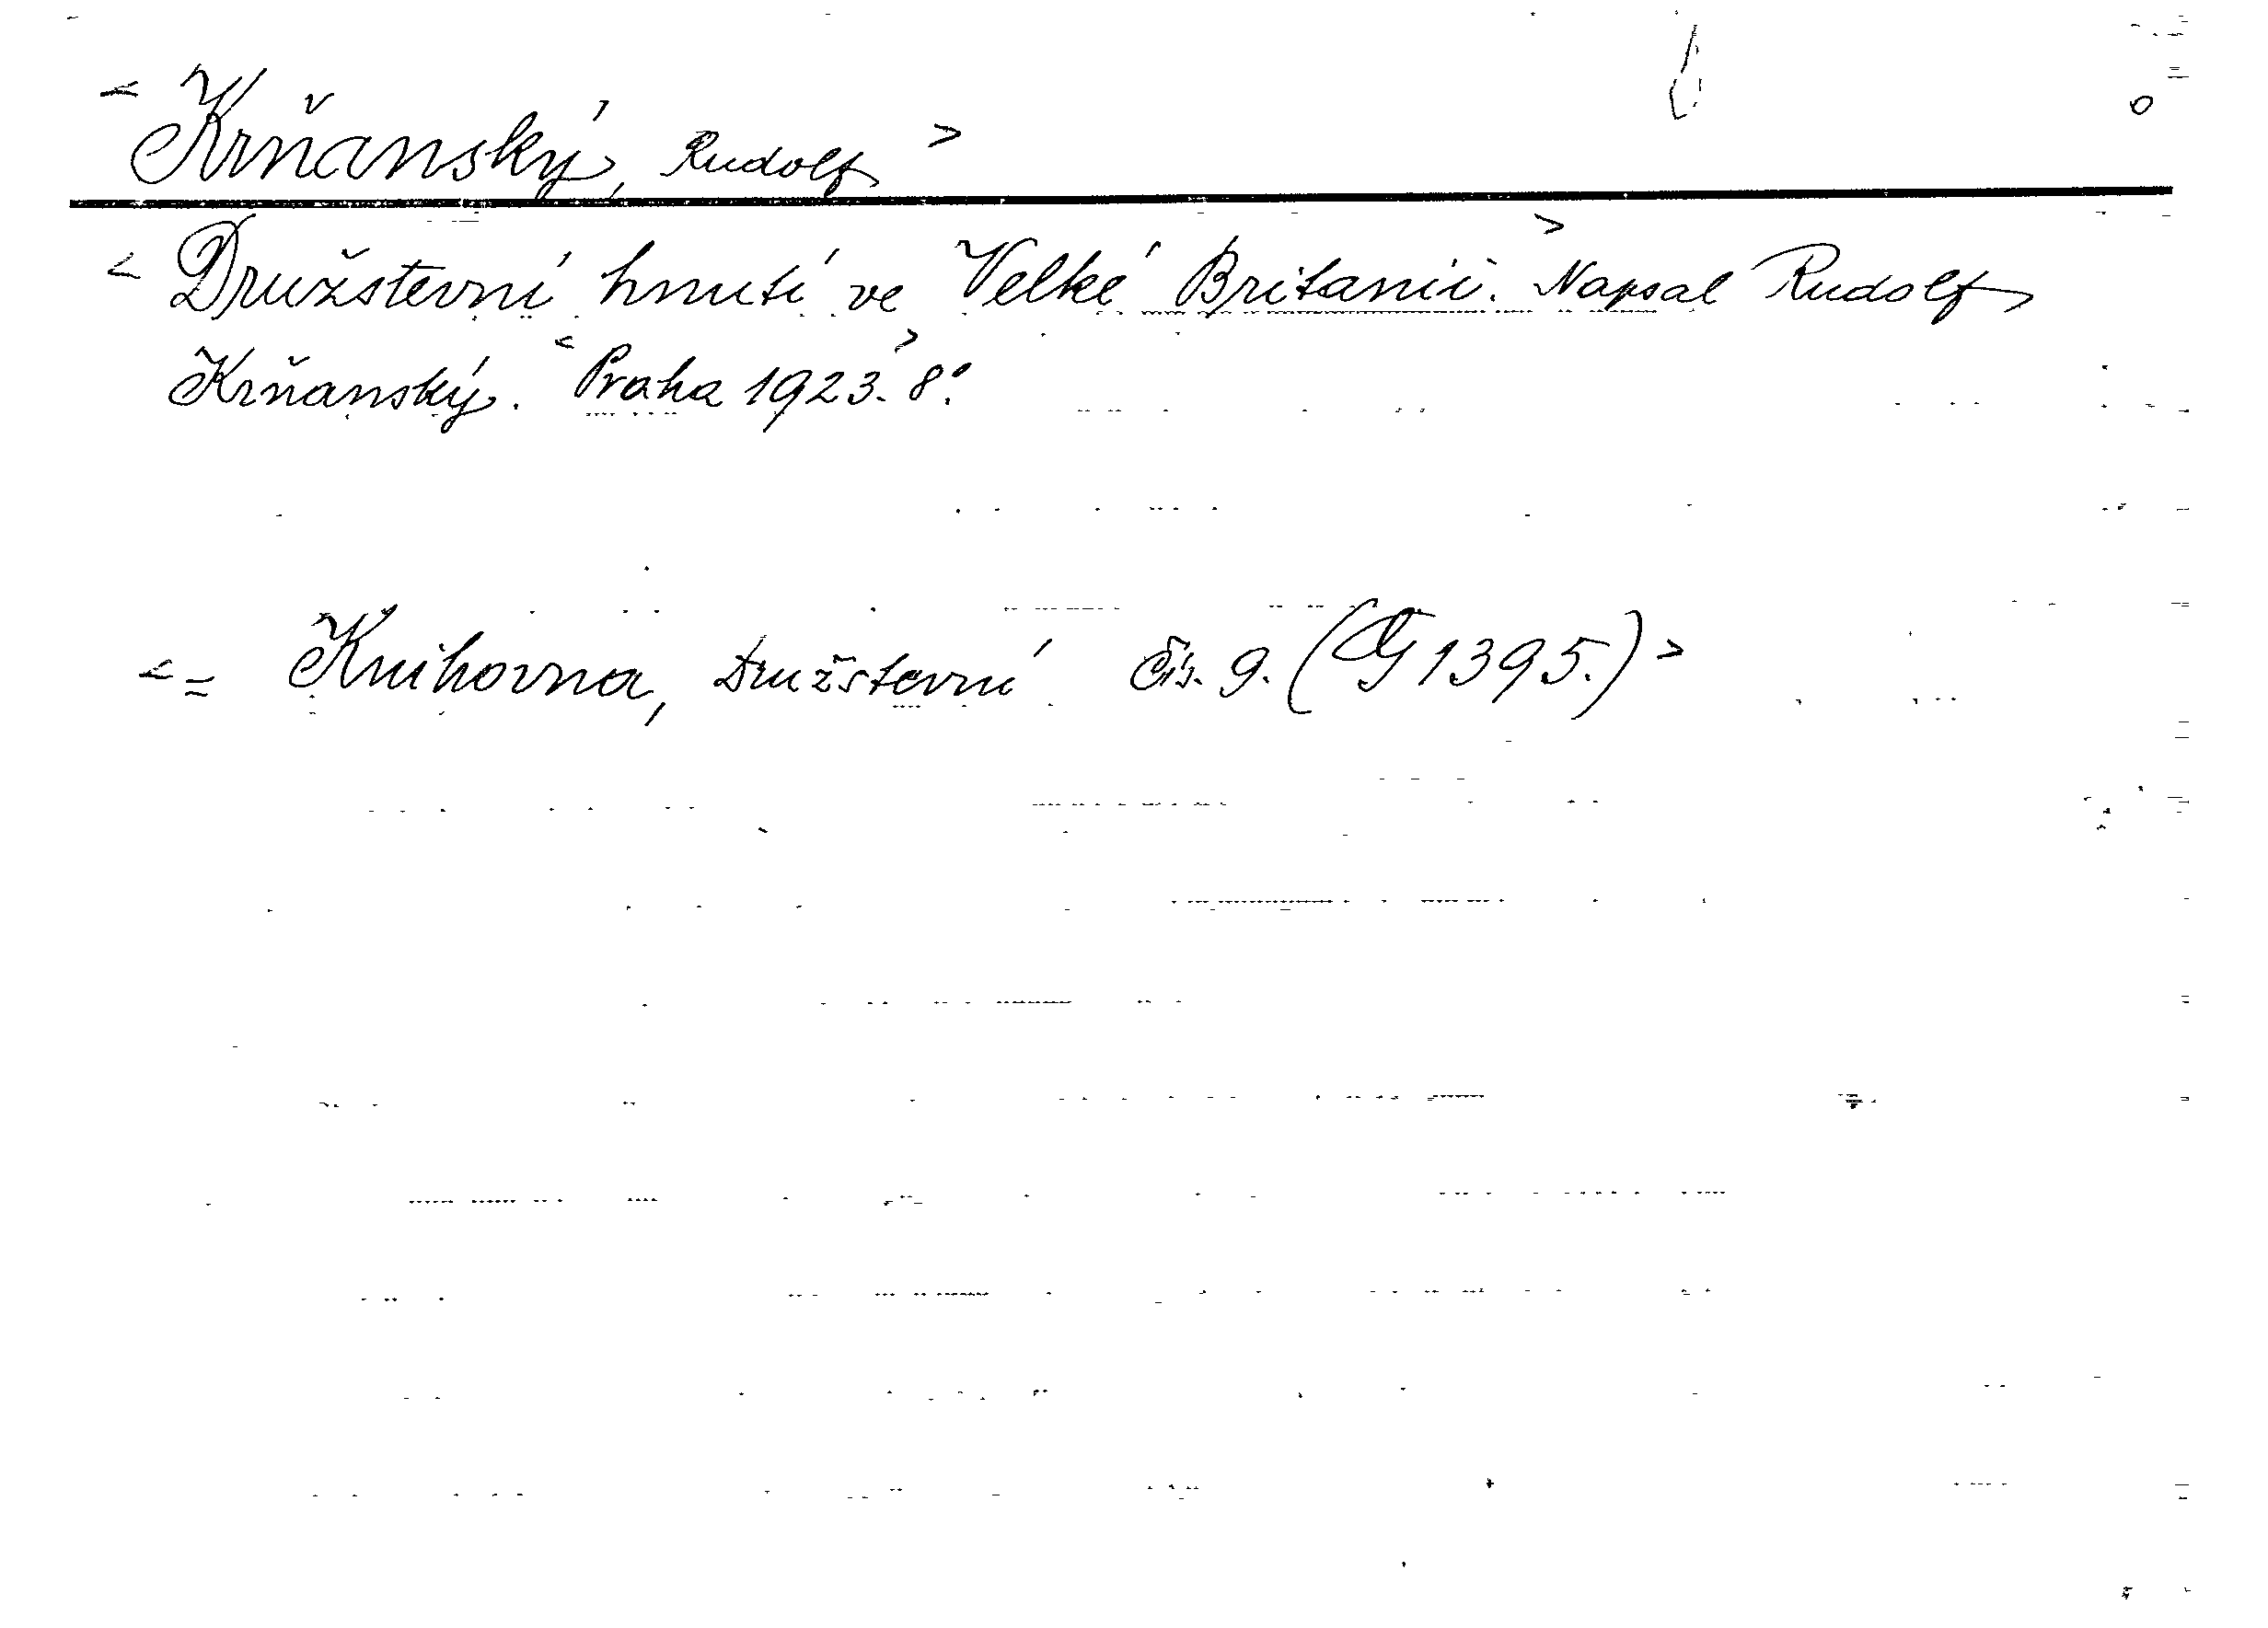 < Krňanský, Rudolf >
< Družstevní hnutí ve Velké Britanii. > Napsal Rudolf
Krňanský. < Praha 1923. > 8°.
< = Knihovna, Družstevní čís. 9. (G 1395.) >